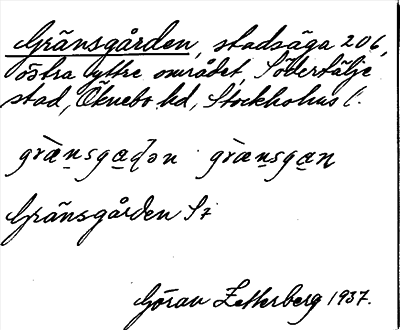 Gränsgården, stadsäga 206,
östra yttre området, Södertälje
stad, Öknebo hd, Stockholms l.
grä̀nsga̱dən grä̀nsga̱n
Gränsgården S7
Göran Zetterberg 1937.